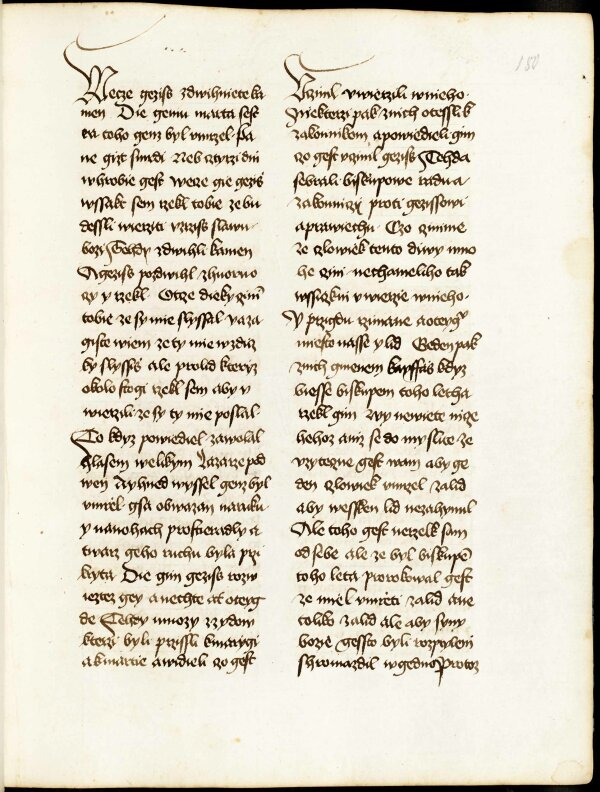 Wecze geziss zdwihniete ka
men Die gemu marta sest
ra toho genz byl vmrzel Pa
ne giz smrdi Neb cztyrzi dni
w hrobie gest Wecze gie geziss
wssak sem rzekl tobie ze bu
dessli wierziti vzrziss slawu
bozi Tehdy zdwihli kamen
A geziss podwihl zhuoruo
czy y rzekl Otcze dieky czinim
tobie ze sy mie slyssal va ia
giste wiem ze ty mie wzdicz
ky slyssiss ale pro lid kteryz
okolo stogi rzekl sem aby v
wierzili ze sy ty mie poslal
To kdyz powiediel zawolal
hlasem welikym Lazarze pod
wen A yhned wyssel genz byl
vmrel gsa obwazan na ruku
y na nohach prostieradly a
twarz geho ruchu byla przi
kryta Die gim geziss rozw
iezte gey a nechte at oteyg
de Tehdy mnozy z zydow
kterzi byli przissli k marzygi
a k martie a widieli czo gest
Vczinil vwierzili w nieho
Niekterzi pak z nich otessli k
zakonnikom a powiedieli gim
czo gest vczinil geziss Tehda
sebrali biskupowe radu a
zakonniczy proti gezissowi
a prawiechu Czo czinime
ze czlowiek tento diwy mno
he czini nechameliho tak
wssiczkni vwierzie w nieho
Y przigdu rzimane a oteymu
miesto nasse y lid Geden pak
z nich gmenem kayffas kdyz
biesse biskupem toho letha
rzekl gim Wy newiete nicze
hehoz aniz se domyslite ze
vzyteczne gest wam aby ge
den czlowiek vmrzel za lid
aby wessken lid nezahynul
Ale toho gest nerzekl sam
od sebe ale ze byl biskupem
toho leta prorokowal gest
ze miel vmrzti za lid a ne
toliko za lid ale aby syny
bozie gessto byli rozpyleni
shromazdil w gedno Protoz
150